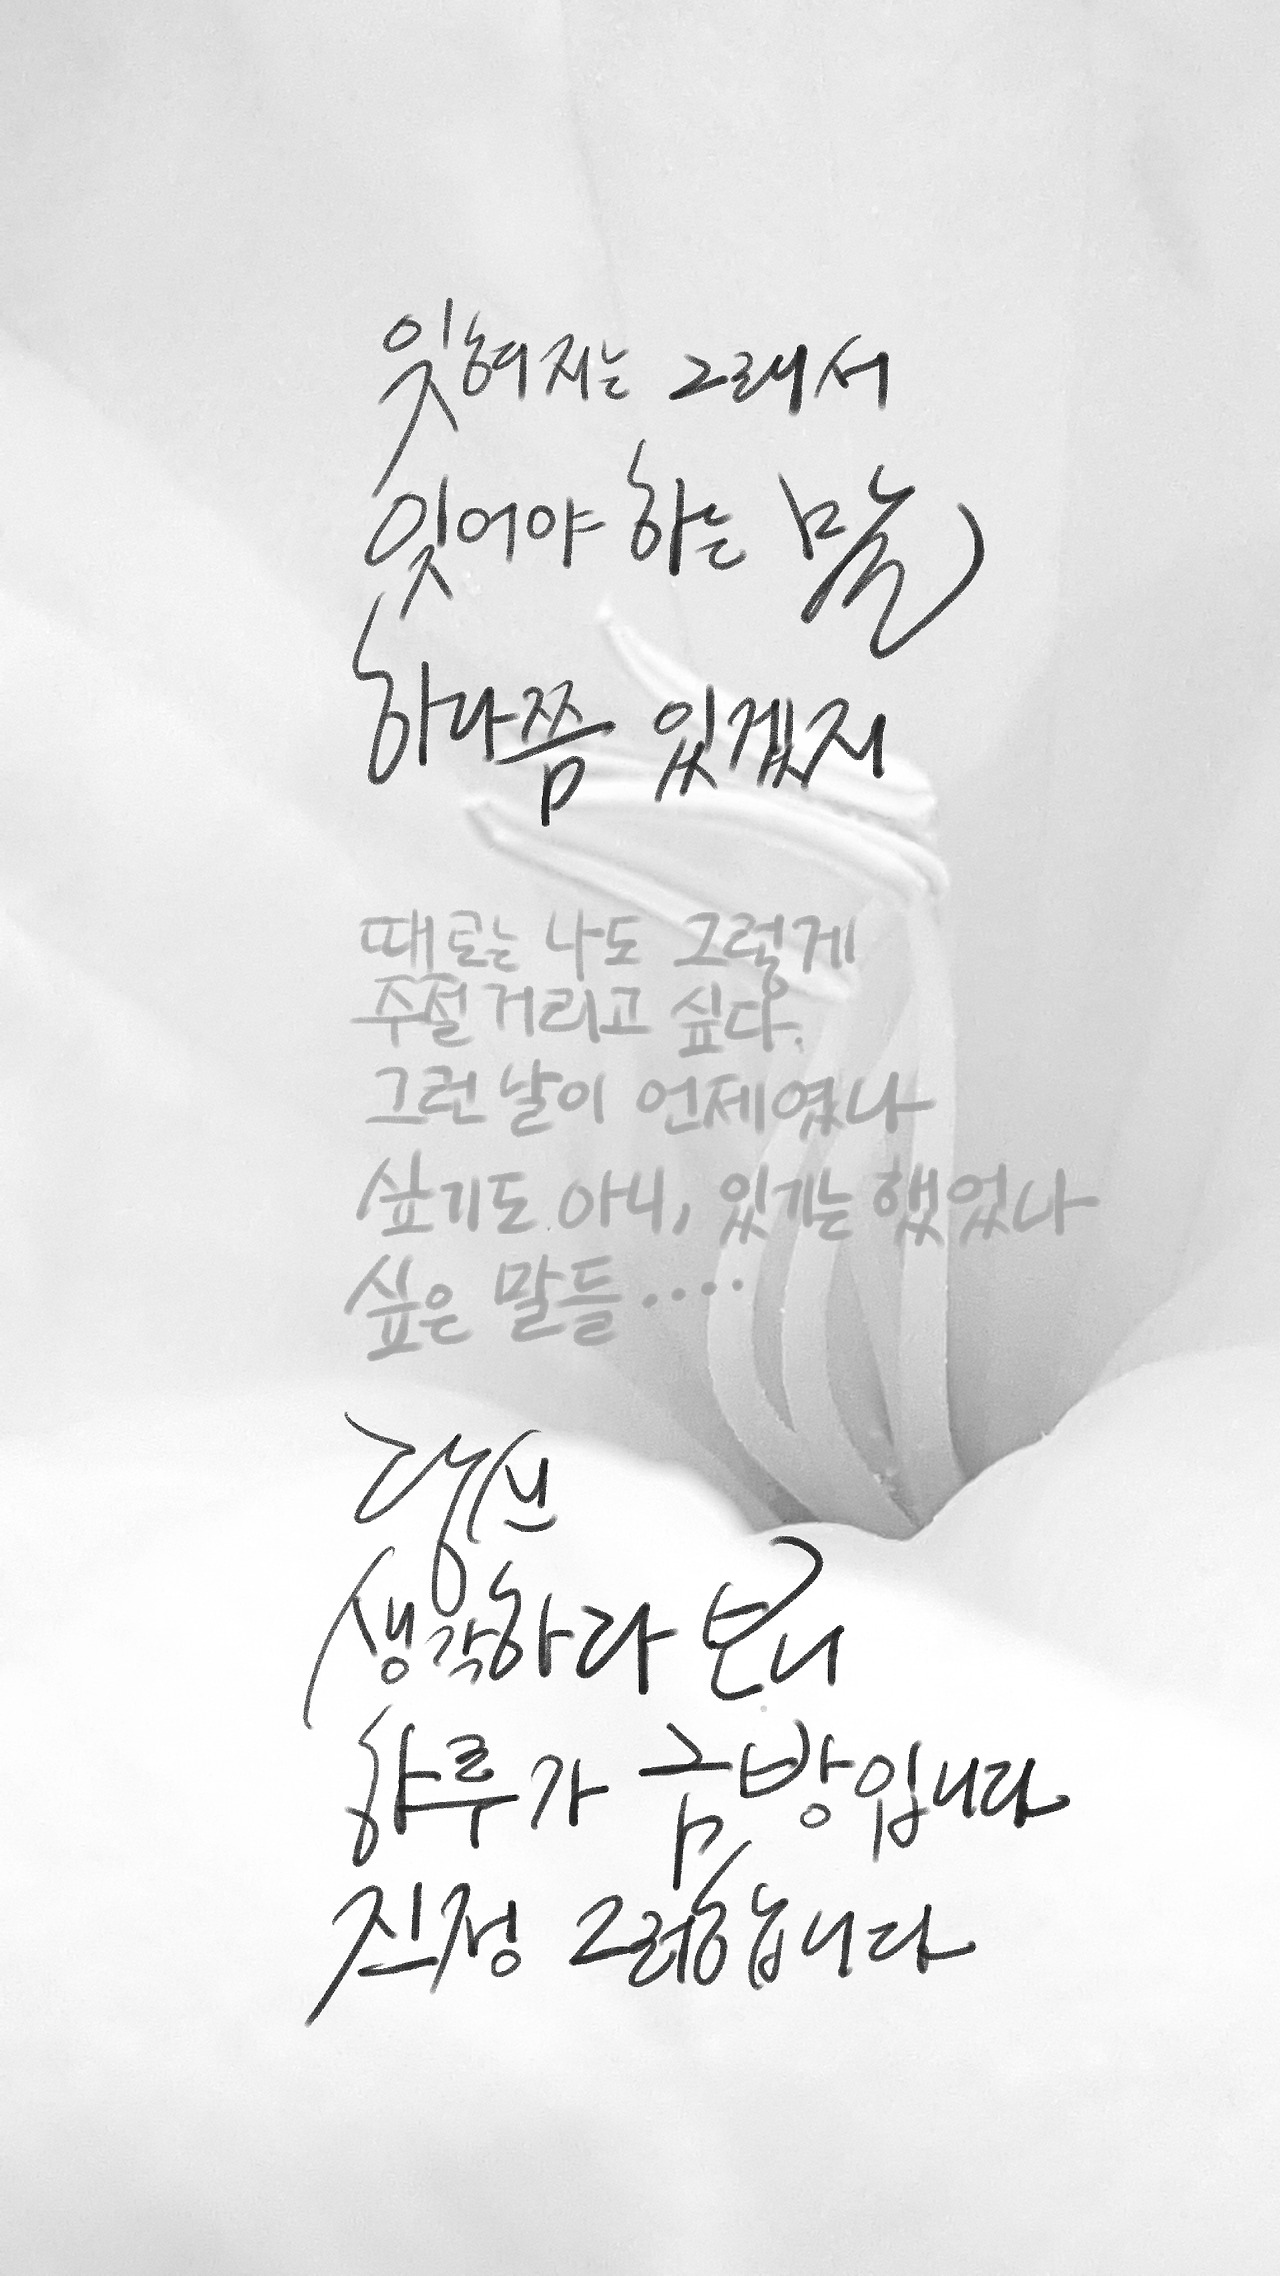 잊혀지는 그래서
잊어야 하는 말
하나쯤 있겠지
때로는 나도 그렇게
주절거리고 싶다.
그런 날이 언제였나
싶기도 아니, 있기는 했었나
싶은 말들....
생각하다 보니
하루가 금방입니다
진정 그러합니다